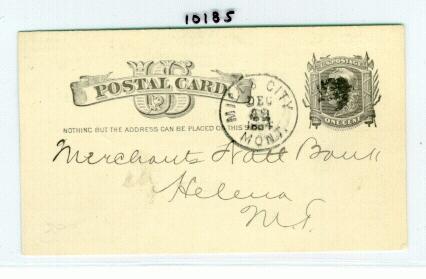 10185
POSTAL CARD
US
U.S. POSTAGE
NOTHING BUT THE ADDRESS CAN BE PLACED ON THIS SIDE
MILES CITY
DEC
MONT.
ONE CENT
Merchants Natl Bank
Helena
M.T.